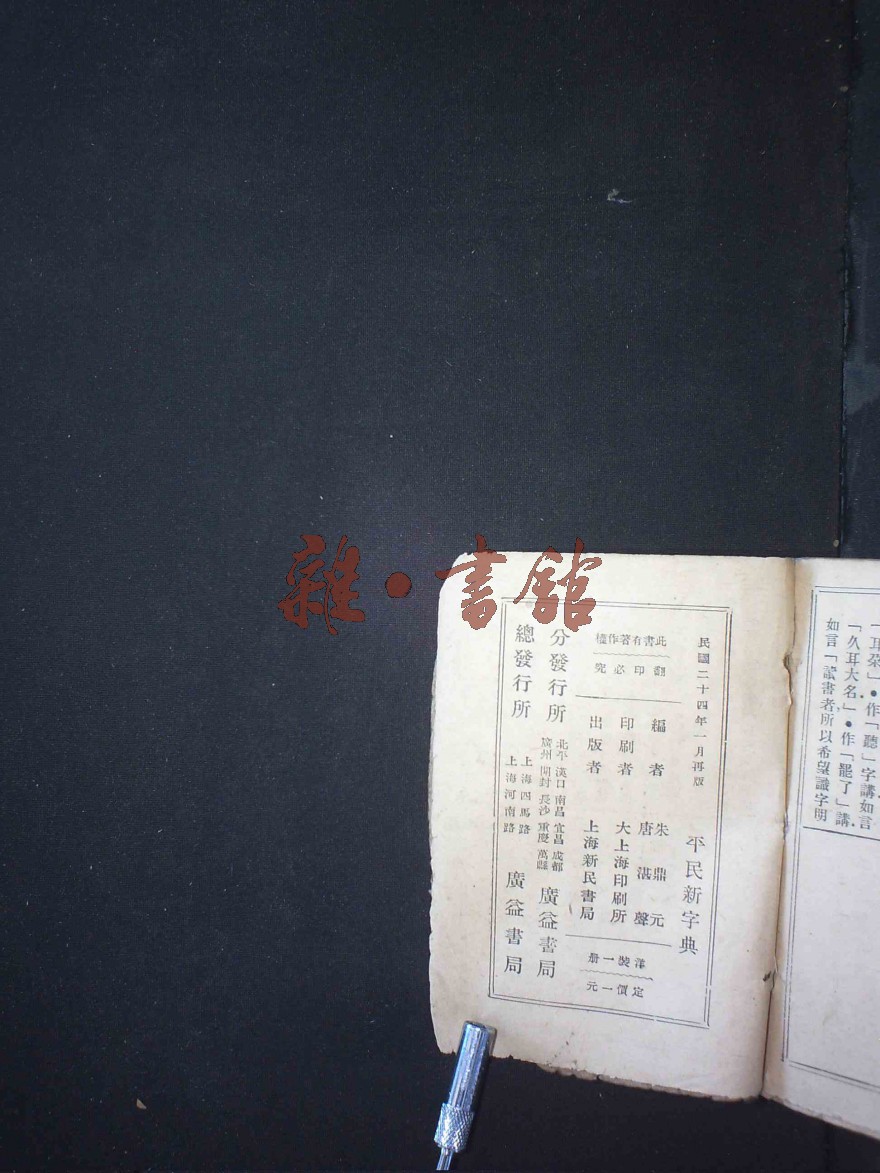 雜·書館
民國二十四年一月再版
平民新字典
此書有著作權
翻印必究
編者 朱鼎元 唐湛聲
印刷者 大上海印刷所
出版者 上海新民書局
洋裝一册
定價一元
分發行所 北平 漢口 南昌 宜昌 成都 廣州 開封 長沙 重慶 萬縣 廣益書局
總發行所 上海四馬路 上海河南路 廣益書局
「耳朵」●作「聽」字講如言
「久耳大名」●作「罷了」講
如言「讀書者所以希望識字明